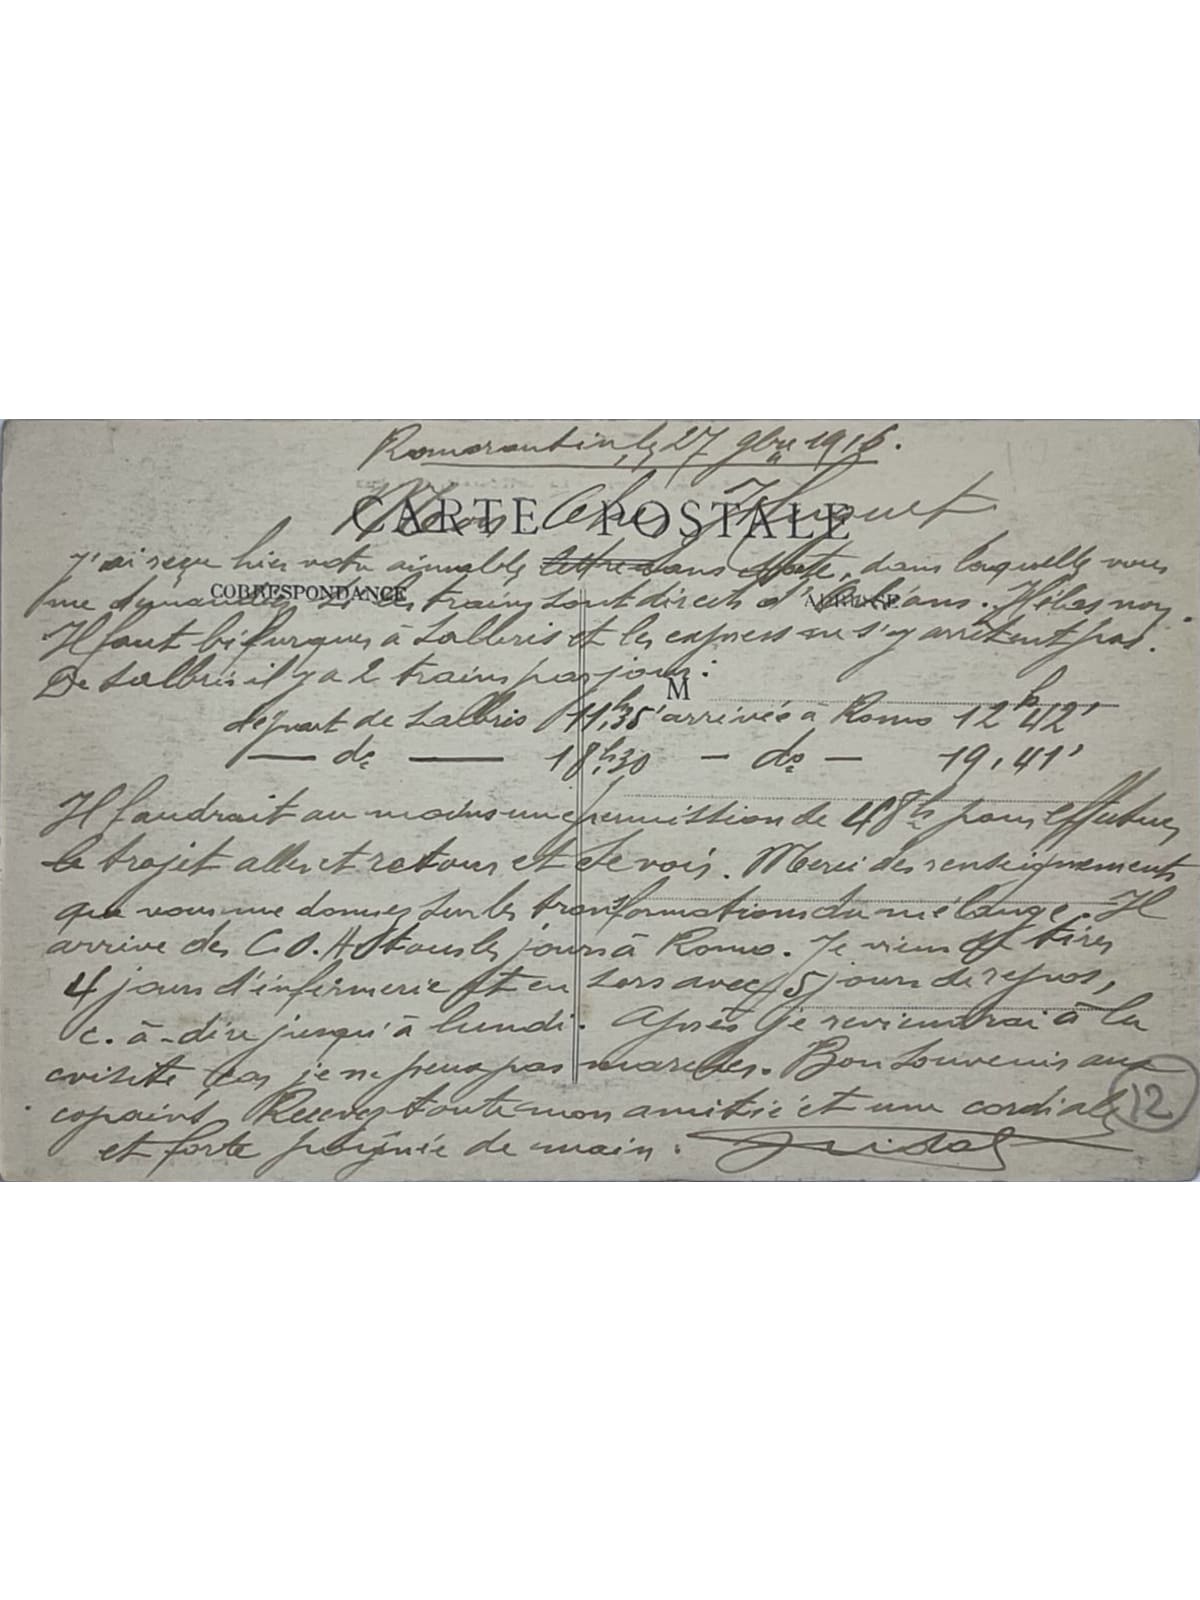 Romorantin, le 27 9bre 1916.
CARTE POSTALE
Mon Cher Huguet
J'ai reçu hier votre aimable lettre sans date, dans laquelle vous
CORRESPONDANCE
ADRESSE
me demandez si les trains sont directs d'Orléans. Hélas non.
Il faut bifurquer à Salbris et les express ne s'y arrêtent pas.
De Salbris il y a 2 trains par jour :
M
départ de Salbris 11h,35' arrivée à Romo 12h42'
— do — 18h,30 — do — 19,41'
Il faudrait au moins une permission de 48h pour effectuer
le trajet aller et retour et se voir. Merci des renseignements
que vous me donnez sur les transformations du mélange. Il
arrive des C.O.A. tous les jours à Romo. Je viens de tirer
4 jours d'infirmerie et en sors avec 5 jours de repos,
c.-à-dire jusqu'à lundi. Après je reviendrai à la
visite, car je ne peux pas marcher. Bon souvenir aux
copains. Recevez toute mon amitié et une cordiale
12
et forte poignée de main. Vidal